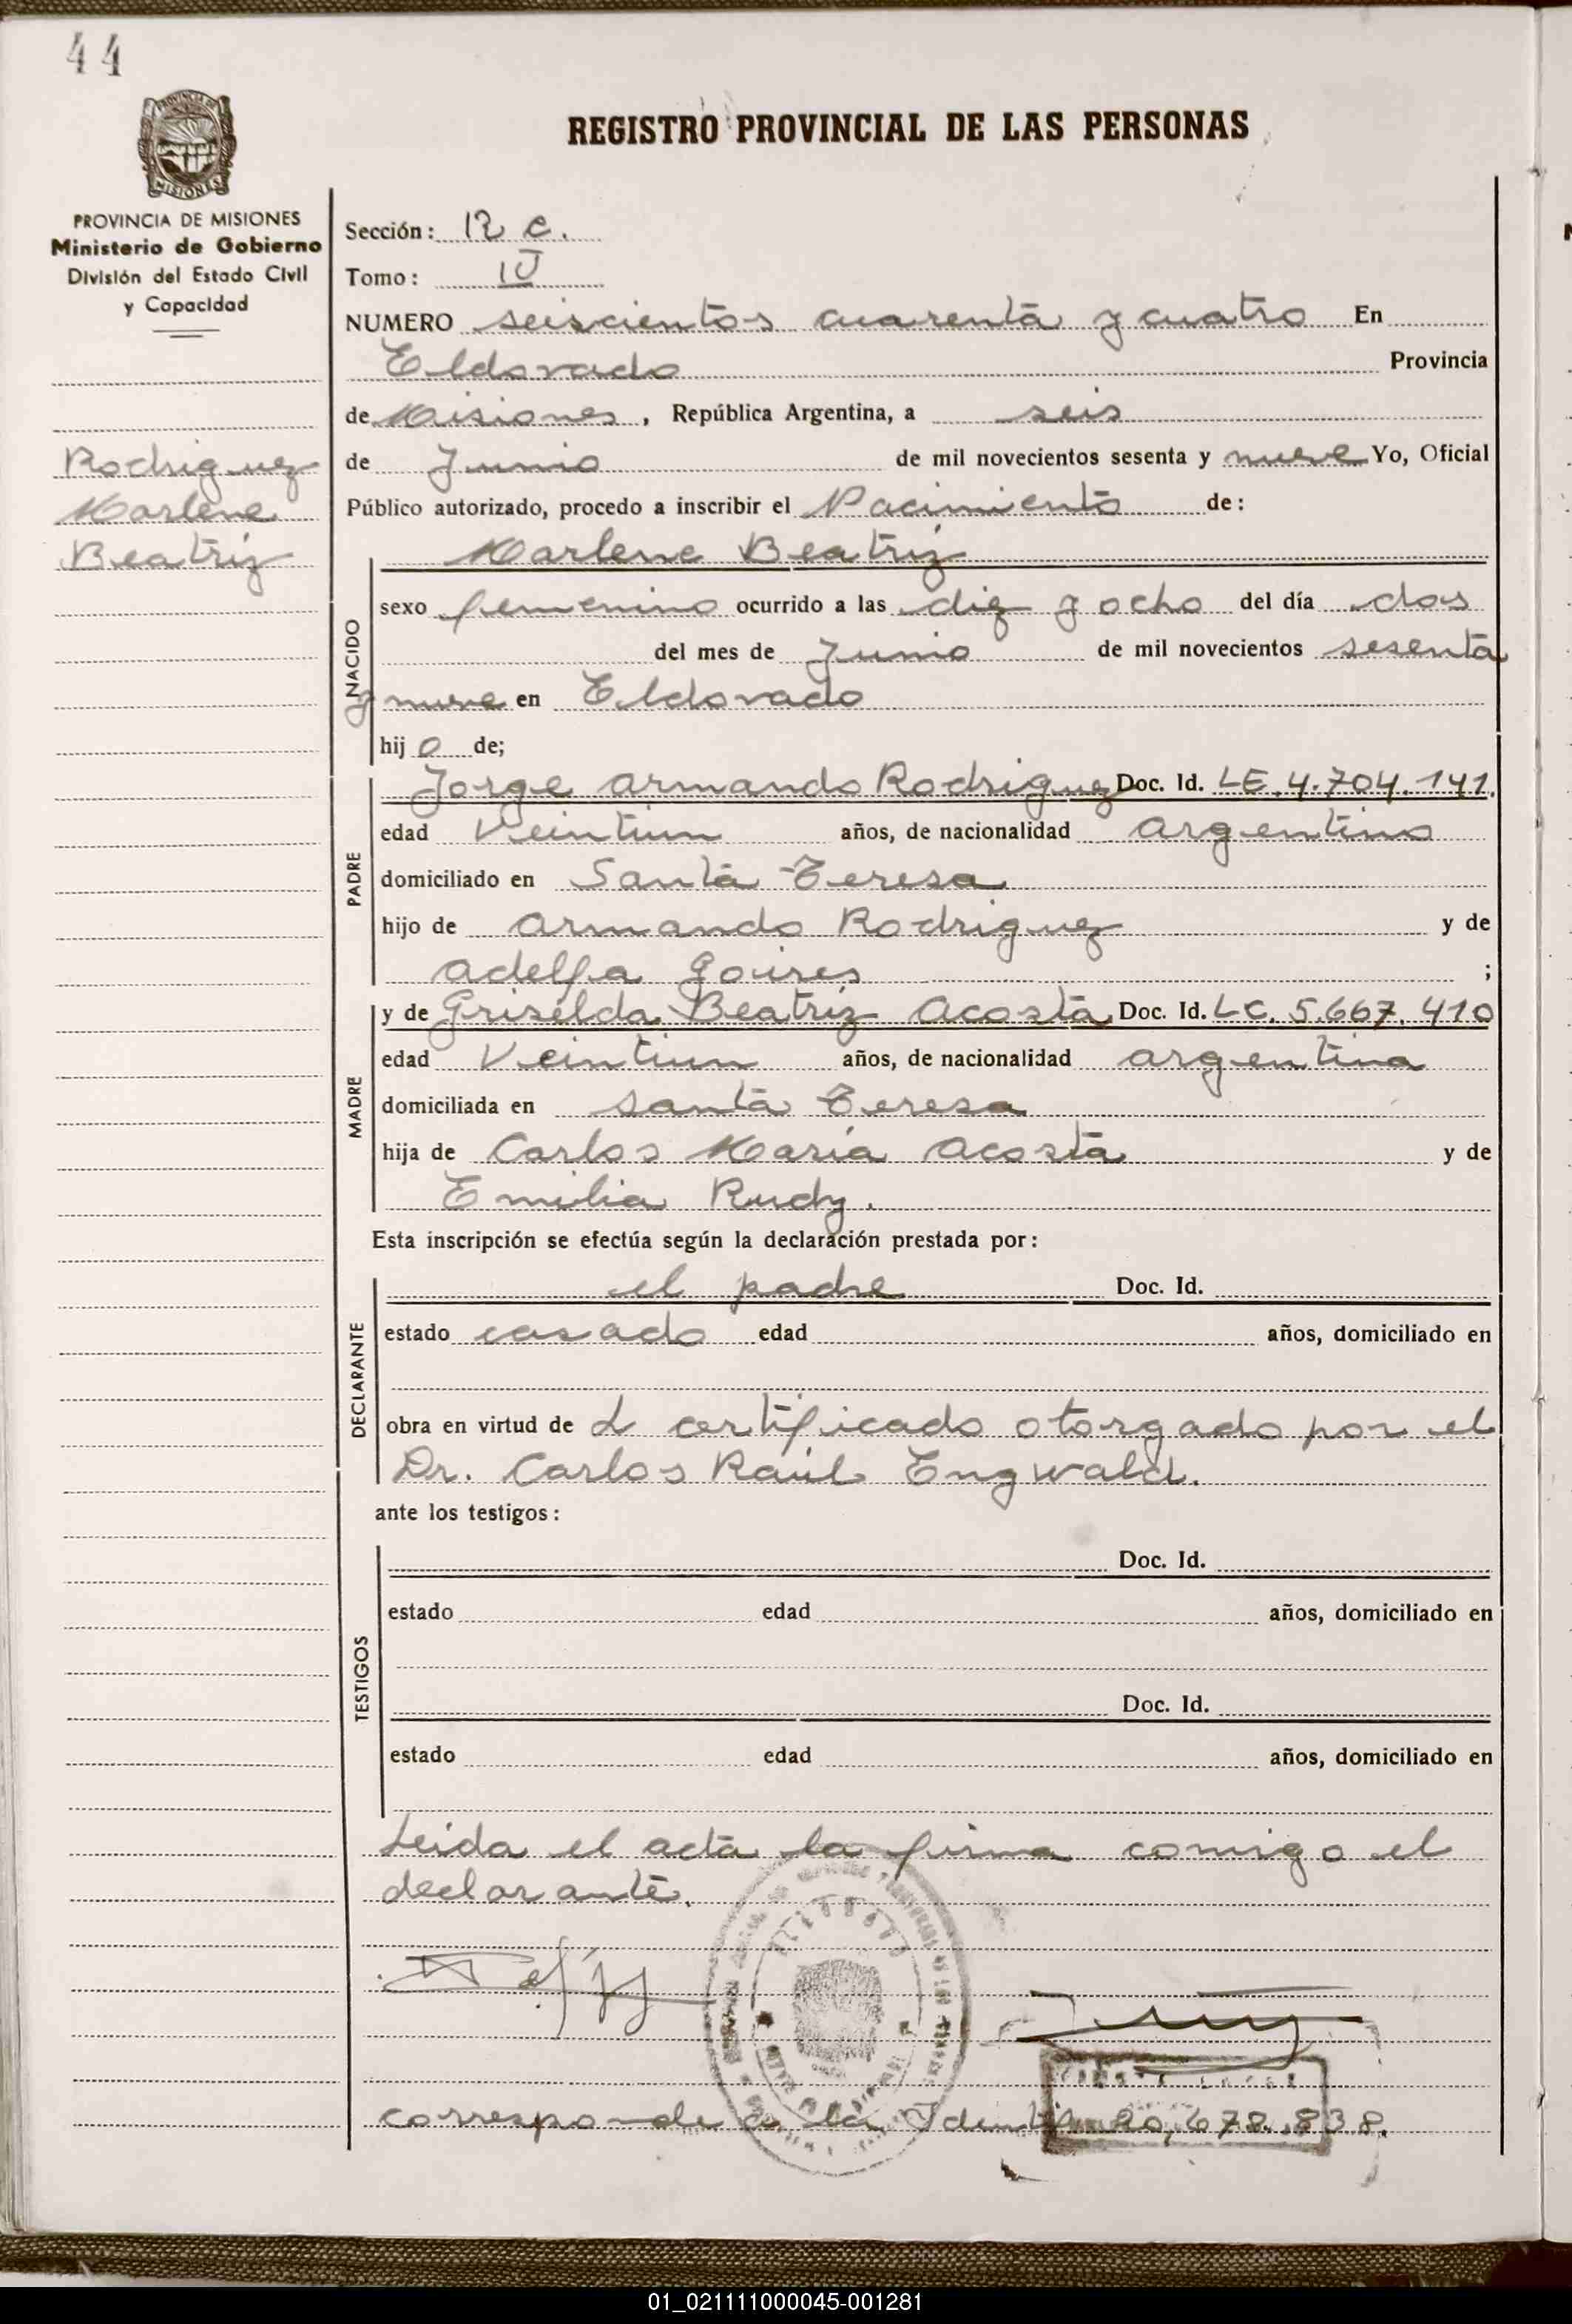 44
REGISTRO PROVINCIAL DE LAS PERSONAS
PROVINCIA DE MISIONES
Ministerio de Gobierno
División del Estado Civil
y Capacidad
Rodriguez
Marlene
Beatriz
Sección: R C.
Tomo: IV
NUMERO seiscientos cuarenta y cuatro En
Eldorado Provincia
de Misiones, República Argentina, a seis
de Junio de mil novecientos sesenta y nueve Yo, Oficial
Público autorizado, procedo a inscribir el Nacimiento de:
Marlene Beatriz
NACIDO
sexo femenino ocurrido a las diez y ocho del día dos
del mes de Junio de mil novecientos sesenta
y nueve en Eldorado
hij a de;
PADRE
Jorge Armando Rodriguez Doc. Id. LE.4.704.141.
edad Veintiun años, de nacionalidad argentino
domiciliado en Santa Teresa
hijo de Armando Rodriguez y de
Adelfa ;
MADRE
y de Griselda Beatriz Acosta Doc. Id. LC. 5.667.410
edad Veintiun años, de nacionalidad argentina
domiciliada en Santa Teresa
hija de Carlos María Acosta y de
Emilia Rudy.
Esta inscripción se efectúa según la declaración prestada por:
DECLARANTE
el padre Doc. Id.
estado casado edad años, domiciliado en
obra en virtud de L certificado otorgado por el
Dr. Carlos Raúl Engwald.
ante los testigos:
TESTIGOS
Doc. Id.
estado edad años, domiciliado en
Doc. Id.
estado edad años, domiciliado en
Leida el acta la firma conmigo el
declarante.
corresponde a la 20,678.838.
01_021111000045-001281